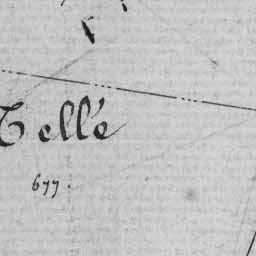 Tellé
677.